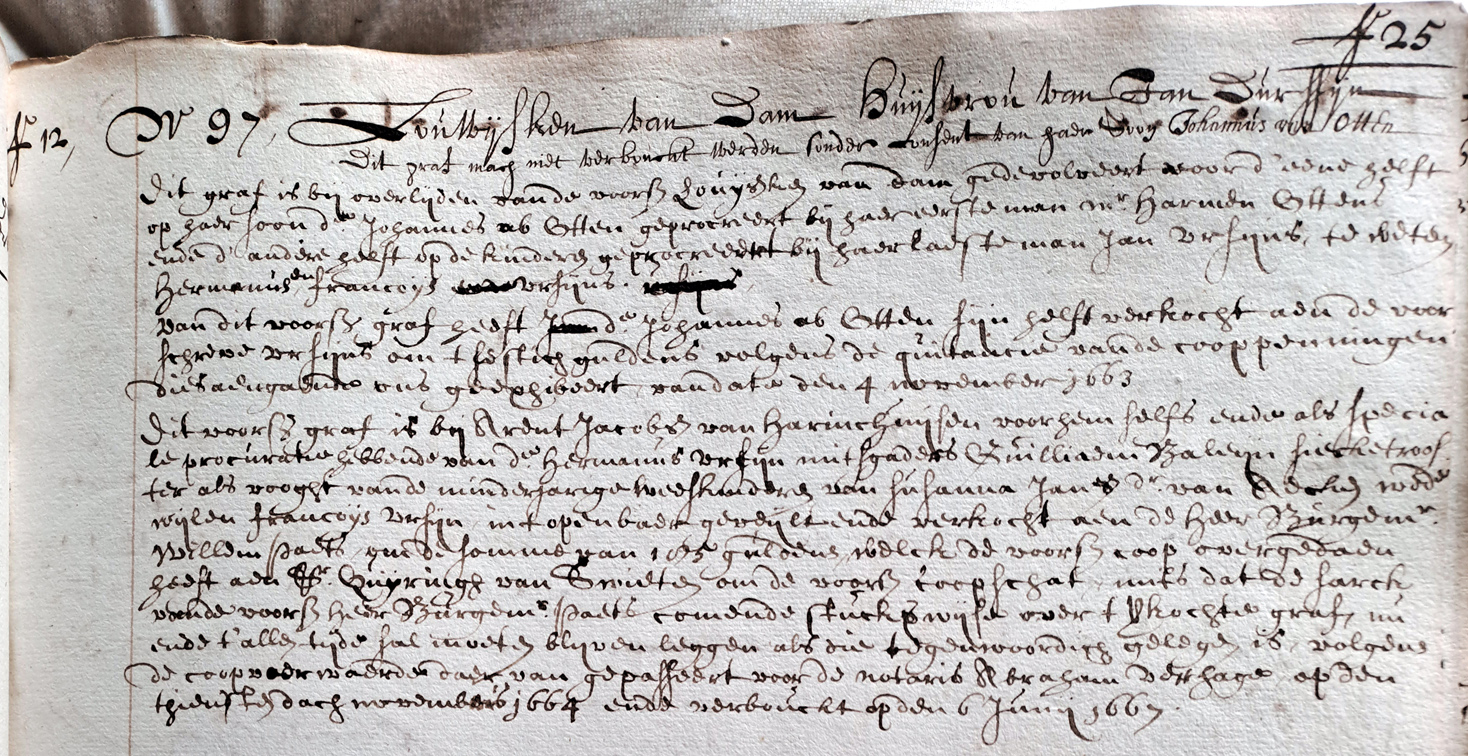 f 25
f 12, N 97, Louwijsken van Dam Huijsvrou van Jan Durssijn
Dit graf mach niet verbouckt werden sonder consent van haer Soon Johannus van Otten
Dit graf is bij overlijden vande voorsz Louijsken van dam gedevolveert voor d' eene helft
op haer soon d.° Johannes ab Otten geprocreert bij haer eerste man mr Harmen Ottens
ende d' andere helft op de kinderen geprocreert bij haer laeste man Jan Ursijns, te weten
Hermanus en francoijs ursijns.
van dit voorsz graf heeft d.° Johannes ab Otten sijn helft verkocht aen de voor
schreve ursijns om t sestich guldens volgens de quitancie vande cooppenningen
dies aengaende ons geexhibeert vandate den 4 november 1663
Dit voorsz graf is bij Arent Jacobsz van Harinchuijsen voor hem selfs ende als specia
le procuratie hebbende van d.° Hermanus ursijn mitsgaders Guilliaem Balein siecketroos
ter als vooght vande minderjarige weeskinderen van susanna Jans dr. van wede
wijlen francoijs ursijn int openbaer geveijlt ende verkocht aen de Heer Burgemr.
Willem paets, om de somme van 105 guldens, welck de voorsz coop overgedaen
heeft aen Jr. Quijringh van Swieten om de voorsz coopschat, mits dat de sarck
vande voorsz Heer Burgemr. paets comende stuckswijse over t vkochte graf, nu
ende t' allen tijde sal moeten blijven leggen als die tegenwoordich gelegen is, volgens
de coopvoorwaerde daer van gepasseert voor de notaris Abraham verhage op den
thiensten dach novembris 1664 ende verbouckt op den 6 Junij 1667.